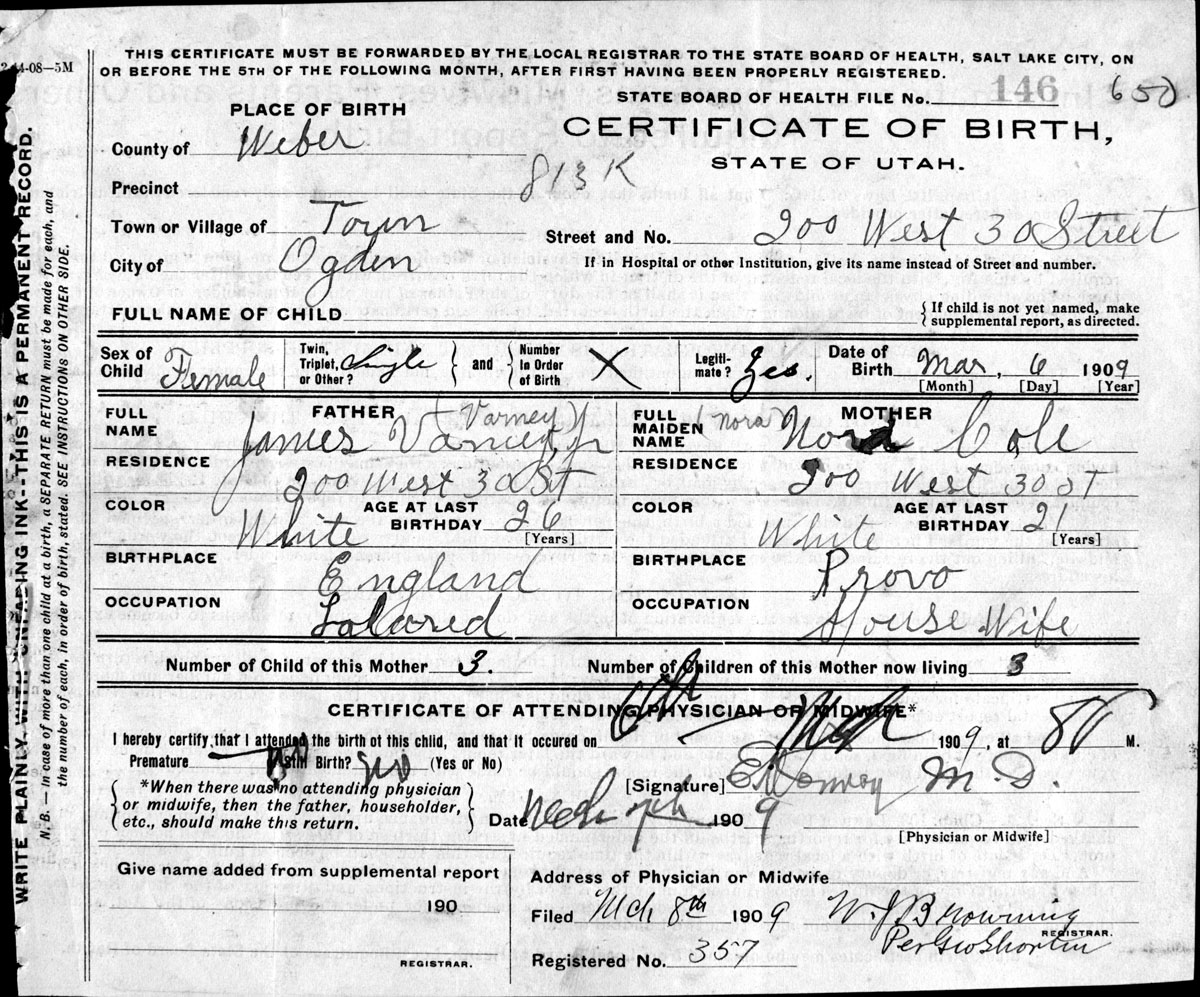 THIS CERTIFICATE MUST BE FORWARDED BY THE LOCAL REGISTRAR TO THE STATE BOARD OF HEALTH, SALT LAKE CITY, ON
OR BEFORE THE 5TH OF THE FOLLOWING MONTH, AFTER FIRST HAVING BEEN PROPERLY REGISTERED.
-08—5M
STATE BOARD OF HEALTH FILE No. 146 650
PLACE OF BIRTH
CERTIFICATE OF BIRTH,
STATE OF UTAH.
County of Weber
813 K
Precinct
Town or Village of Town
Street and No. 200 West 30 Street
City of Ogden
If in Hospital or other Institution, give its name instead of Street and number.
FULL NAME OF CHILD
{ If child is not yet named, make
supplemental report, as directed.
Sex of Child Female
Twin, Triplet, or Other? Single
and
Number In Order of Birth X
Legiti-mate? Yes.
Date of Birth Mar, 6 1909
[Month] [Day] [Year]
FATHER
FULL NAME James Varney Jr (Varney)
RESIDENCE
200 West 30 St
COLOR White
AGE AT LAST BIRTHDAY 26
[Years]
BIRTHPLACE England
OCCUPATION
MOTHER
FULL MAIDEN NAME (nora) Nora Cole
RESIDENCE
200 West 30 St
COLOR White
AGE AT LAST BIRTHDAY 21
[Years]
BIRTHPLACE Provo
OCCUPATION House Wife
Number of Child of this Mother 3.
Number of Children of this Mother now living 3
CERTIFICATE OF ATTENDING PHYSICIAN OR MIDWIFE*
I hereby certify, that I attended the birth of this child, and that it occured on 1909, at M.
Premature Still Birth? (Yes or No)
[Signature] M. D.
*When there was no attending physician
or midwife, then the father, householder,
etc., should make this return.
Date 1909
[Physician or Midwife]
Give name added from supplemental report
190
REGISTRAR.
Address of Physician or Midwife
Filed Mch 8th 1909 W. J. Browning
REGISTRAR.
Per Geo Shorten
Registered No. 357
WRITE PLAINLY, WITH UNFADING INK--THIS IS A PERMANENT RECORD.
N. B. — In case of more than one child at a birth, a SEPARATE RETURN must be made for each, and
the number of each, in order of birth, stated. SEE INSTRUCTIONS ON OTHER SIDE.